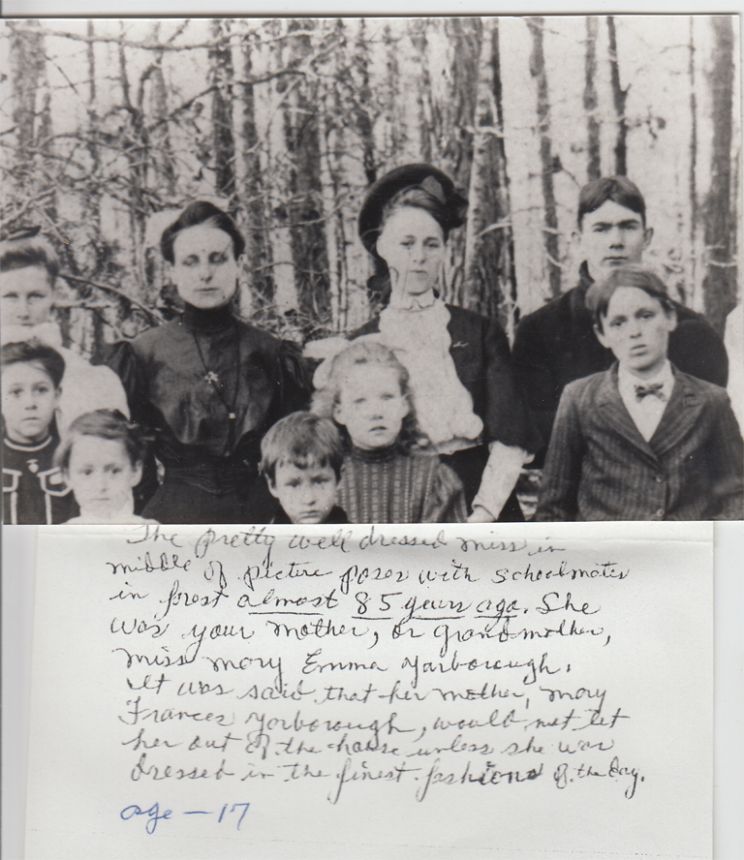 The pretty well dressed miss in
middle of picture poses with schoolmates
in forest almost 85 years ago. She
was your mother, or grandmother,
miss mary Emma Yarborough.
It was said that her mother, mary
Frances Yorborough, would not let
her out of the house unless she was
dressed in the finest fashions of the day.
age - 17